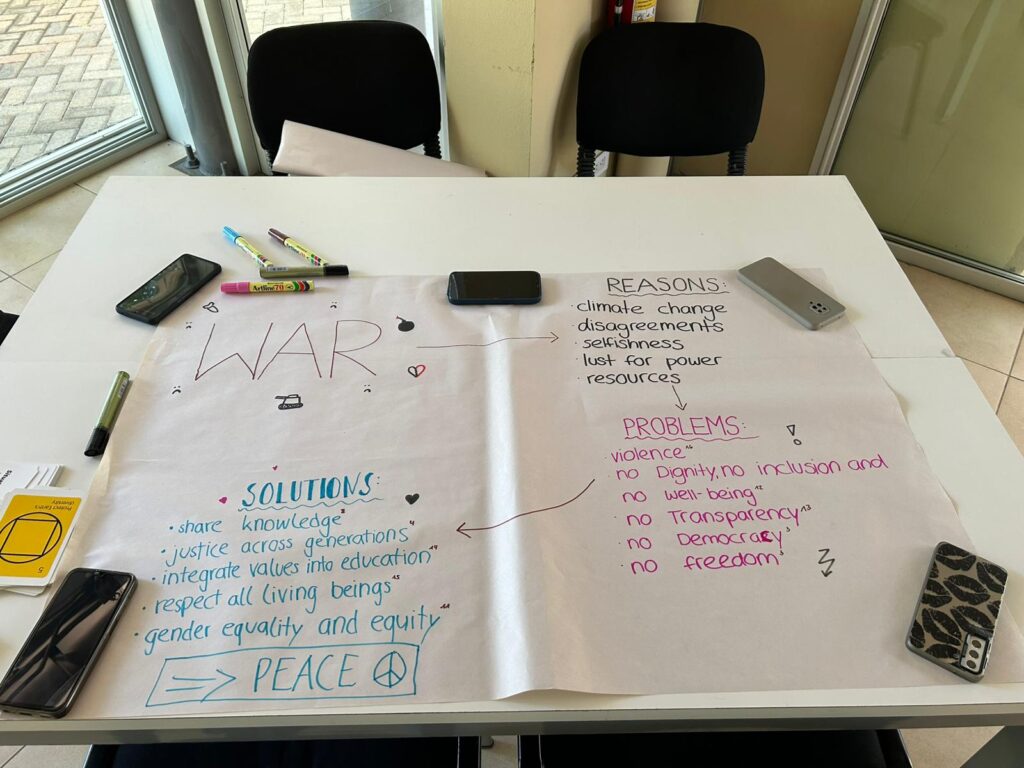 WAR
REASONS:
· climate change
· disagreements
· selfishness
· lust for power
· resources
PROBLEMS:
· violence¹⁶
· no Dignity, no inclusion and
no well-being¹²
· no Transparency¹³
· no Democracy³
· no freedom³
!
SOLUTIONS:
• share knowledge
• justice across generations⁴
• integrate values into education¹⁴
• respect all living beings¹⁵
• gender equality and equity¹¹
=> PEACE
Artline 70
Protect Earth's
diversity
5